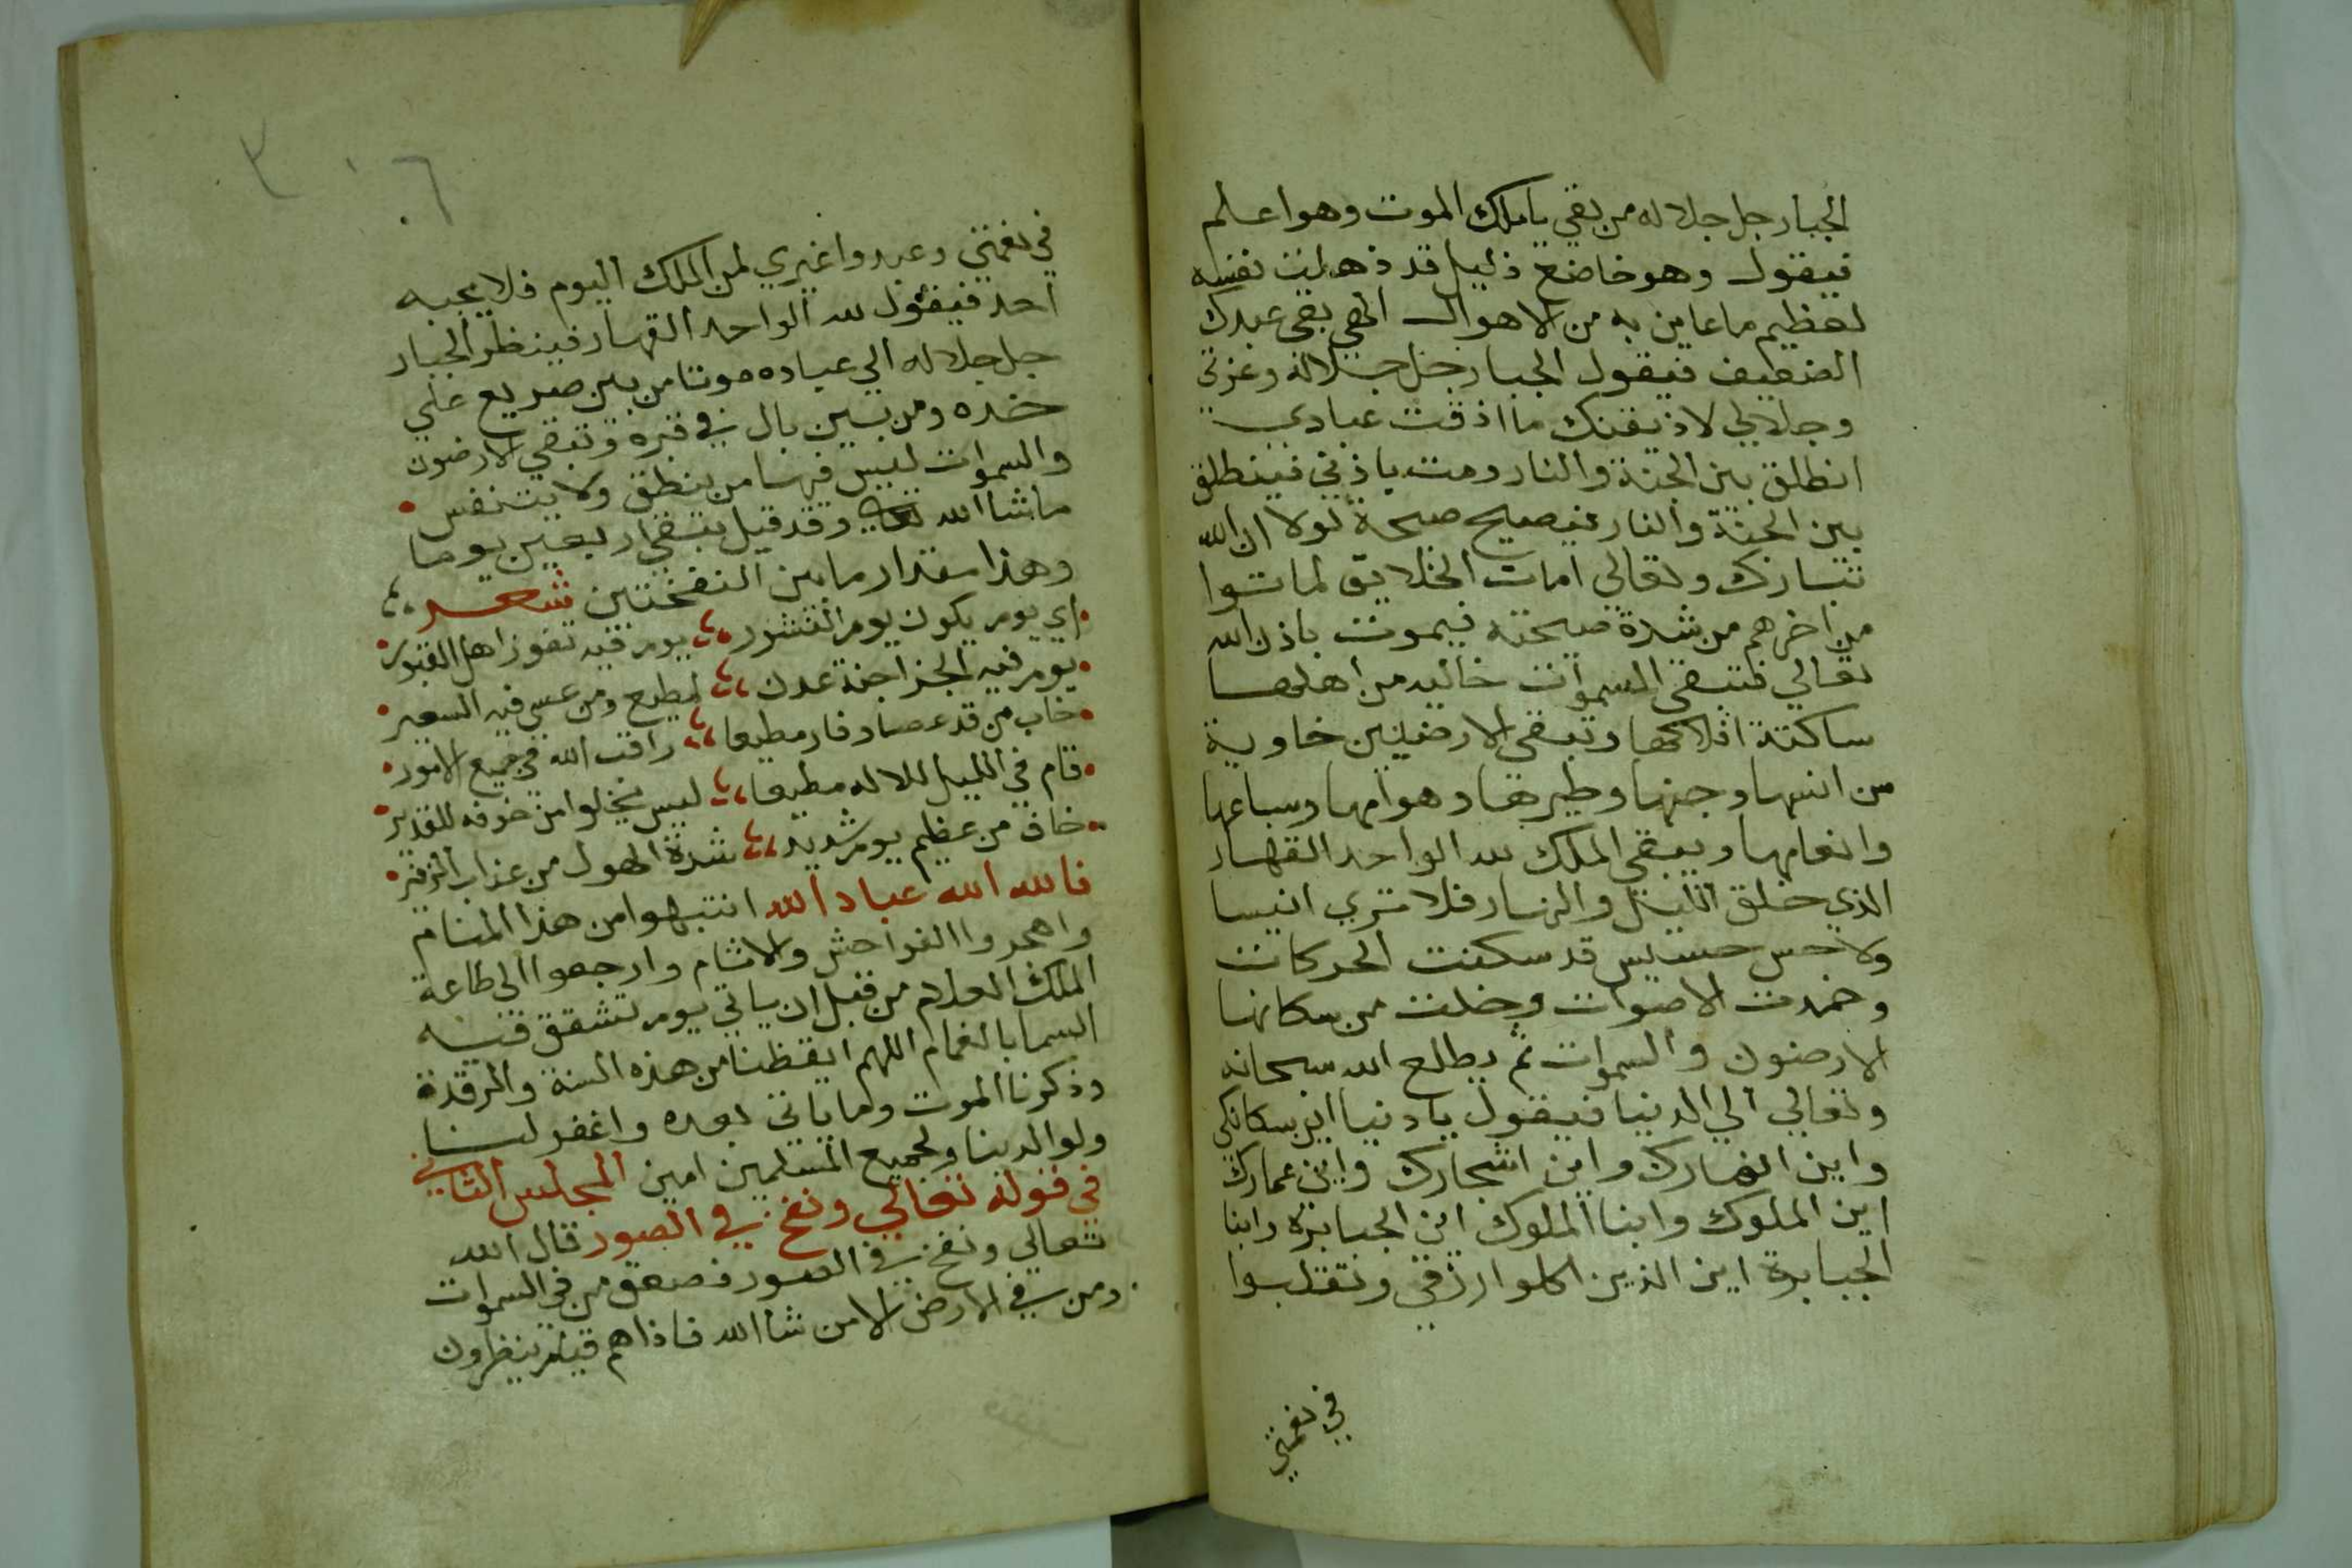 الجبار جل جلاله من بقي يا ملك الموت وهو اعلم
فيقول وهو خاضع ذليل قد ذهلت نفسه
لعظيم ما عاين به من الاهوال الهي بقي عبدك
الضعيف فيقول الجبار جل جلاله وعزتي
وجلالي لاذيقنك ما اذقت عبادي
انطلق بين الجنة والنار ومت باذني فينطلق
بين الجنة والنار فيصيح صيحة لولا ان الله
تبارك وتعالي امات الخلايق لماتوا
من اخرهم من شدة صيحته فيموت باذن الله
تعالي فتبقي السموات خاليه من اهلها
ساكتة افلاكها وتبقي الارضيين خاوية
من انسها وجنها وطيرها وهوامها وسباعها
وانعامها ويبقي الملك لله الواحد القهار
الذي خلق الليل والنهار فلا تري انيسا
ولا حس حسيس قد سكنت الحركات
وخمدت الاصوات وخلت من سكانها
الارضون والسموات ثم يطلع الله سبحانه
وتعالي الي الدنيا فيقول يا دنيا اين سكانكي
واين انهارك واين اشجارك واين عمارك
اين الملوك وابنا الملوك اين الجبابرة وابنا
الجبابرة اين الذين اكلوا رزقي وتقلبوا
في نعمتي
٣٠٦
في نعمتي وعبدوا غيري لمن الملك اليوم فلا يجبه
احد فيقول لله الواحد القهار فينظر الجبار
جل جلاله الي عباده موتا من بين صريع علي
خده ومن بين بال في قبره وتبقي الارضون
والسموات ليس فيها من ينطق ولا يتنفس
ما شا الله تعالي وقد قيل تبقي اربعين يوما
وهذا مقدار ما بين النفختين شعر
اي يوم يكون يوم النشور يوم فيه تفوز اهل القبور
يوم فيه الجزا جنة عدن لمطيع ومن عسي فيه السعير
خاب من قد عصا وفاز مطيعا راقب الله في جميع الامور
قام في الليل للاله مطيعا ليس يخلوا من خوفه للقدير
خاف من عظيم يوم شديد شدة الهول من عذاب الزفير
فالله الله عباد الله انتبهوا من هذا المنام
واهجروا الفواحش والاثام وارجعوا الي طاعة
الملك العلام من قبل ان ياتي يوم تشقق فيه
السما بالغمام اللهم ايقظنا من هذه السنة والرقدة
وذكرنا الموت وما ياتي بعده واغفر لنا
ولوالدينا ولجميع المسلمين امين المجلس الثاني
في قوله تعالي ونفخ في الصور قال الله
تعالي ونفخ في الصور فصعق من في السموات
ومن في الارض الا من شا الله فاذا هم قيام ينظرون